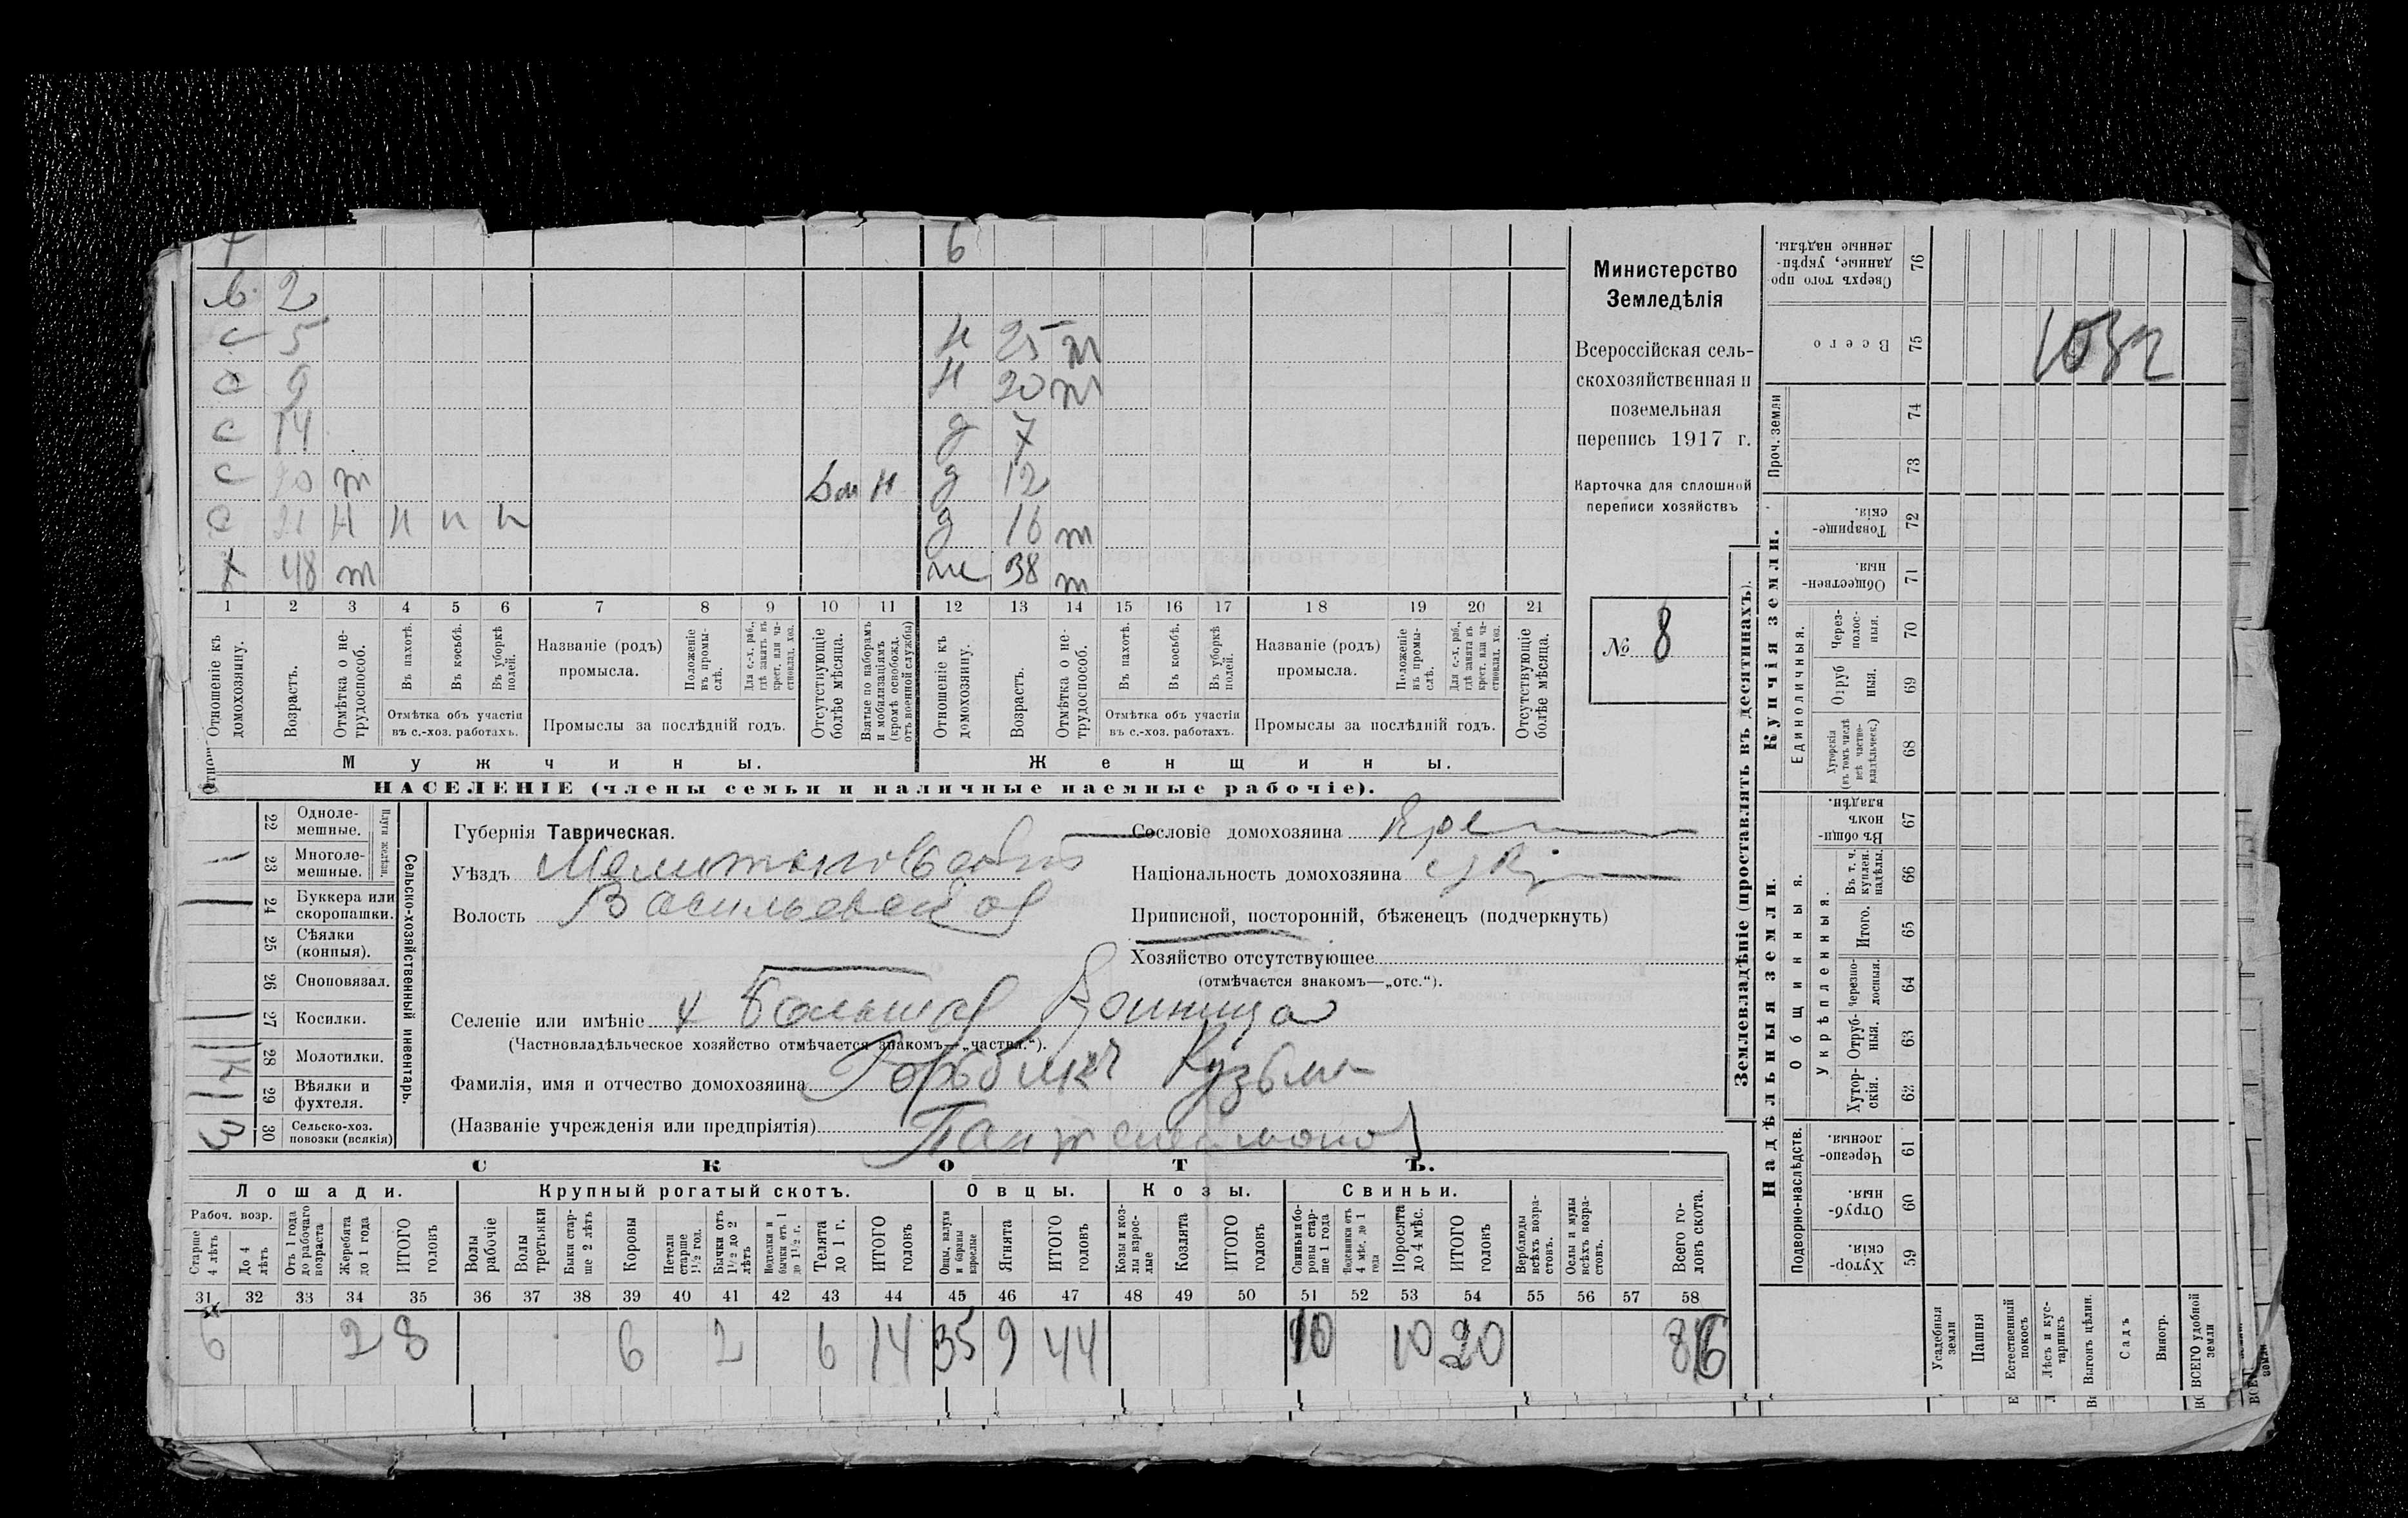 7 6
в 2
с 5 н 25 т
с 9 н 20 т
с 14 д 7
с т н д 12
с 21 н н н н д 16 т
х 48 т ж 38 т
1 2 3 4 5 6 7 8 9 10 11 12 13 14 15 16 17 18 19 20 21
Отношеніе къ домохозяину.
Возрастъ.
Отмѣтка о не-трудоспособ.
Въ пахотѣ.
Въ косьбѣ.
Въ уборкѣ полей.
Отмѣтка объ участіи
въ с.-хоз. работахъ.
Названіе (родъ)
промысла.
Положеніе въ промы-слѣ.
Для с.-х. раб., гдѣ занятъ въ крест. или ча-стновлад. хоз.
Промыслы за послѣдній годъ.
Отсутствующіе болѣе мѣсяца.
Взятые по наборамъ и мобилизаціямъ (кромѣ освобожд. отъ военной службы)
Отношеніе къ домохозяину.
Возрастъ.
Отмѣтка о не-трудоспособ.
Въ пахотѣ.
Въ косьбѣ.
Въ уборкѣ полей.
Отмѣтка объ участіи
въ с.-хоз. работахъ.
Названіе (родъ)
промысла.
Положеніе въ промы-слѣ.
Для с.-х. раб., гдѣ занята въ крест. или ча-стновлад. хоз.
Промыслы за послѣдній годъ.
Отсутствующіе болѣе мѣсяца.
Мужчины. Женщины.
НАСЕЛЕНІЕ (члены семьи и наличные наемные рабочіе).
Министерство
Земледѣлія
Всероссійская сель-
скохозяйственная и
поземельная
перепись 1917 г.
Карточка для сплошной
переписи хозяйствъ
№ 8
Сельско-хозяйственный инвентарь.
Плуги желѣзн.
22 Одноле-мешные.
23 Многоле-мешные.
24 Буккера или скоропашки.
25 Сѣялки (конныя).
26 Сноповязал.
27 Косилки.
28 Молотилки.
29 Вѣялки и фухтеля.
30 Сельско-хоз. повозки (всякія)
3
Губернія Таврическая.
Уѣздъ Мелитопольскій
Волость Васильевская
Сословіе домохозяина Кре
Національность домохозяина
Приписной, посторонній, бѣженецъ (подчеркнуть)
Хозяйство отсутствующее
(отмѣчается знакомъ—„отс.“).
Селеніе или имѣніе Большая
(Частновладѣльческое хозяйство отмѣчается знакомъ—„частвл.“).
Фамилія, имя и отчество домохозяина Кузьма
(Названіе учрежденія или предпріятія)
СКОТЪ.
Лошади. Крупный рогатый скотъ. Овцы. Козы. Свиньи.
Рабоч. возр.
Старше 4 лѣтъ
До 4 лѣтъ
Отъ 1 года до рабочаго возраста
Жеребята до 1 года
ИТОГО головъ
Волы рабочіе
Волы третьяки
Быки стар-ше 2 лѣтъ
Коровы
Нетели старше 1½ год.
Бычки отъ 1½ до 2 лѣтъ
Нетелки и бычки отъ 1 до 1½ г.
Телята до 1 г.
ИТОГО головъ
Овцы, валухи и бараны взрослые
Ягнята
ИТОГО головъ
Козы и коз-лы взрос-лые
Козлята
ИТОГО головъ
Свиньи и бо-ровы стар-ше 1 года
Подсвинки отъ 4 мѣс. до 1 года
Поросята до 4 мѣс.
ИТОГО головъ
Верблюды всѣхъ возра-стовъ.
Ослы и мулы всѣхъ возра-стовъ.
Всего го-ловъ скота.
31 32 33 34 35 36 37 38 39 40 41 42 43 44 45 46 47 48 49 50 51 52 53 54 55 56 57 58
6 2 8 6 2 6 14 35 9 44 10 10 20 86
Землевладѣніе (проставлять въ десятинахъ).
Купчія земли.
Надѣльныя земли.
Сверхъ того про-данные, укрѣп-ленные надѣлы. 76
Всего 75
1032
Проч. земли 74 73
Товарище-скія. 72
Обществен-ныя. 71
Единоличныя.
Через-полос-ныя. 70
Отруб-ныя. 69
Хуторскія (въ томъ числѣ всѣ частно-владѣльческ.) 68
Общинныя.
Въ общи-номъ владѣн. 67
Укрѣпленныя.
Въ т. ч. куплен. надѣлы. 66
Итого. 65
Черезпо-лосныя. 64
Отруб-ныя. 63
Хутор-скія. 62
Подворно-наслѣдств.
Черезпо-лосныя. 61
Отруб-ныя. 60
Хутор-скія. 59
Усадебныя земли
Пашня
Естественный покосъ
Лѣсъ и кус-тарникъ
Выгонъ цѣлин.
Садъ
Виногр.
ВСЕГО удобной земли